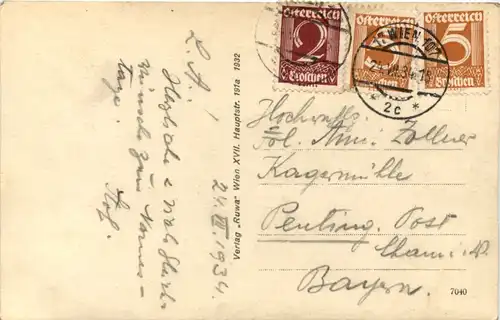 Österreich
2
Groschen
Österreich
5
Österreich
5
Groschen
1 WIEN 101
2c *
L. A!
Herzliche
Wünsche zum Namens-
tage.
24. VII. 1934.
Verlag „Ruwa" Wien XVII. Hauptstr. 191a 1932
Frl. Zollner
Kagermühle
Penting. Post
Cham
Bayern.
7040